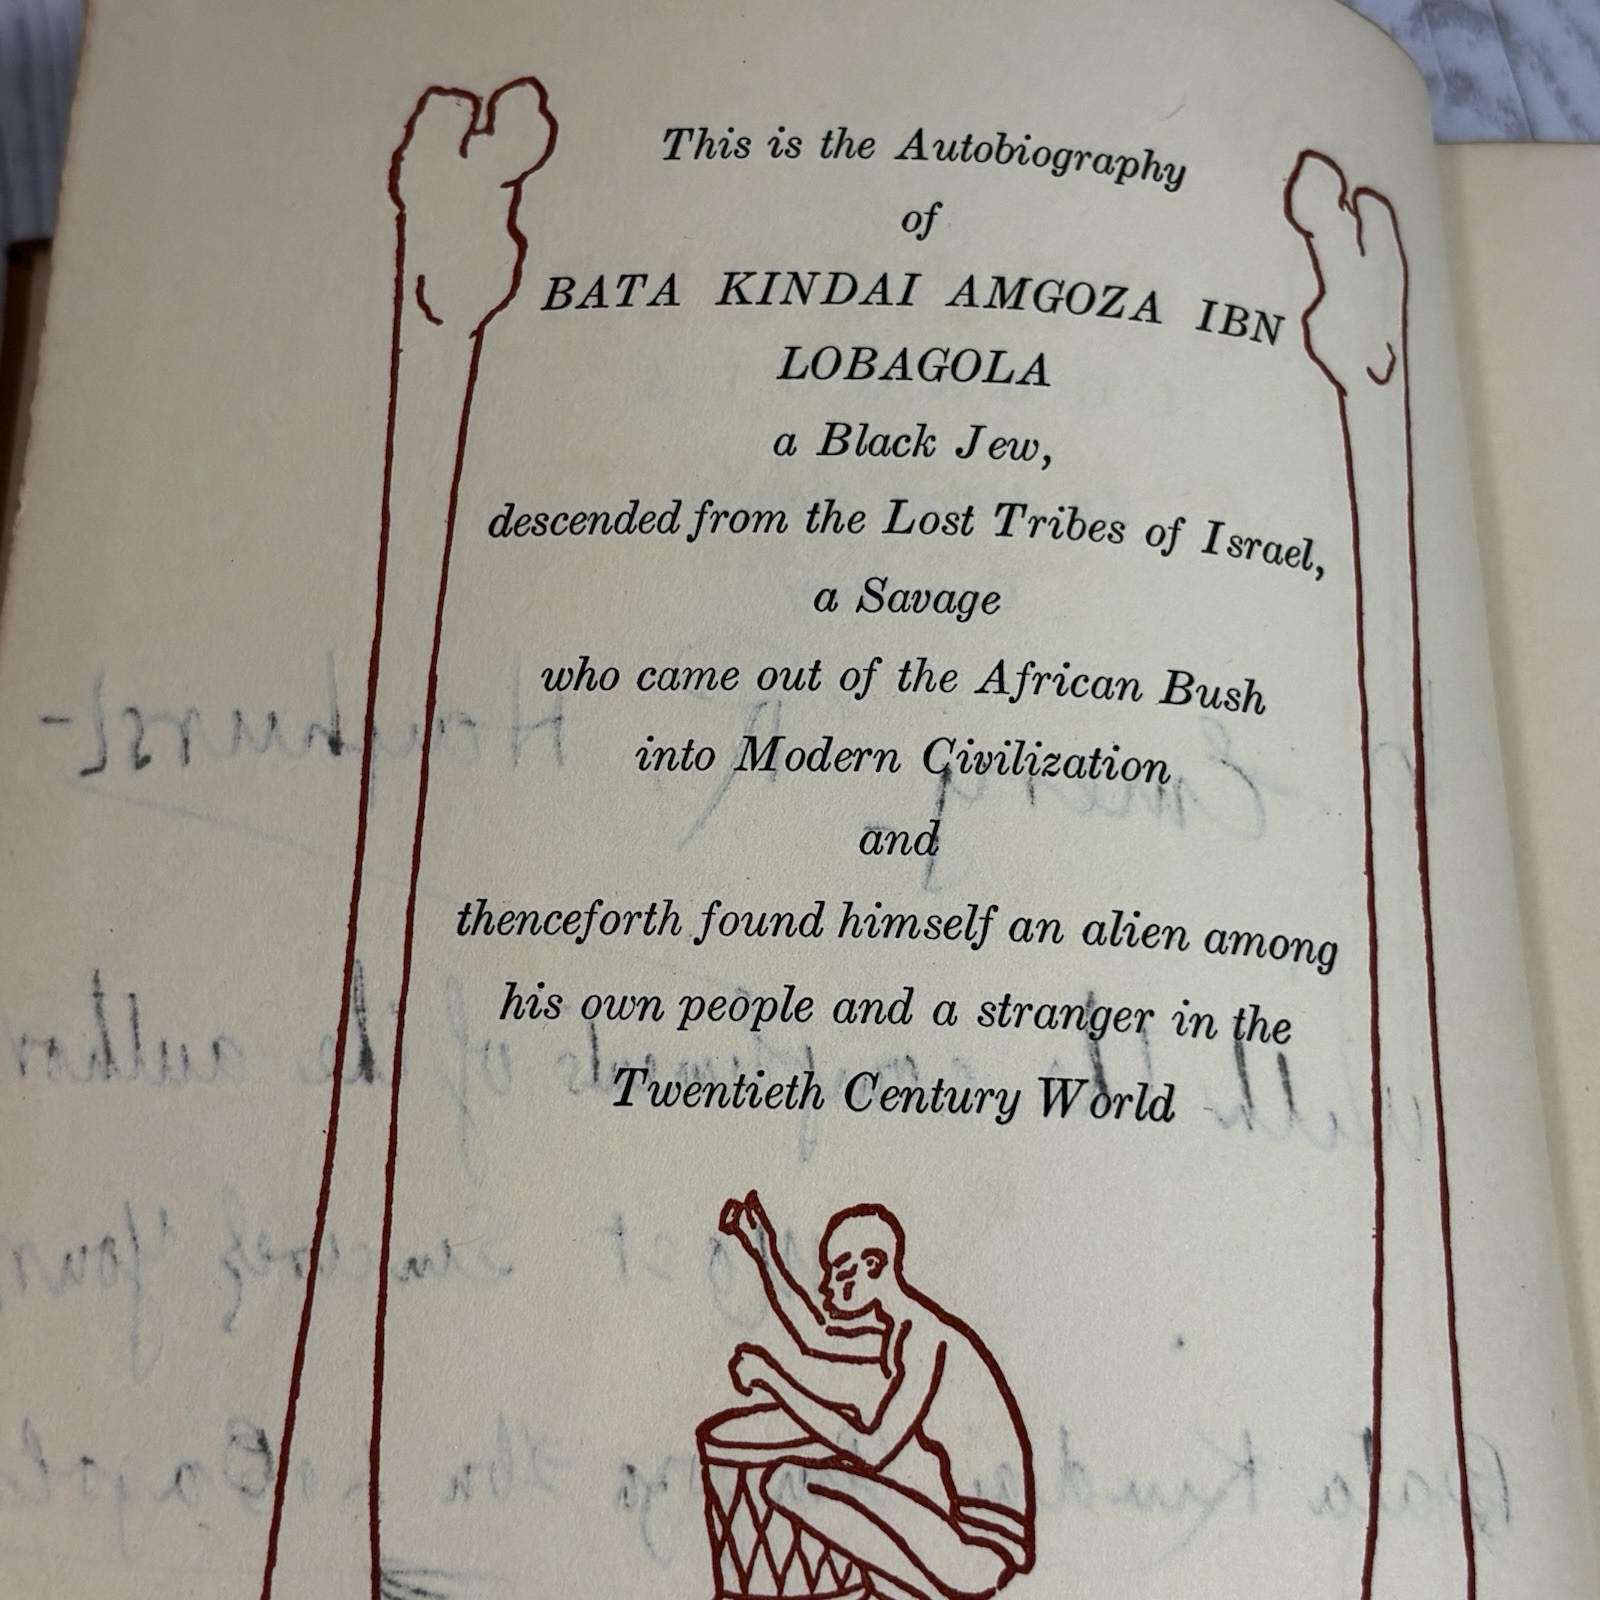 This is the Autobiography
of
BATA KINDAI AMGOZA IBN
LOBAGOLA
a Black Jew,
descended from the Lost Tribes of Israel,
a Savage
who came out of the African Bush
into Modern Civilization
and
thenceforth found himself an alien among
his own people and a stranger in the
Twentieth Century World